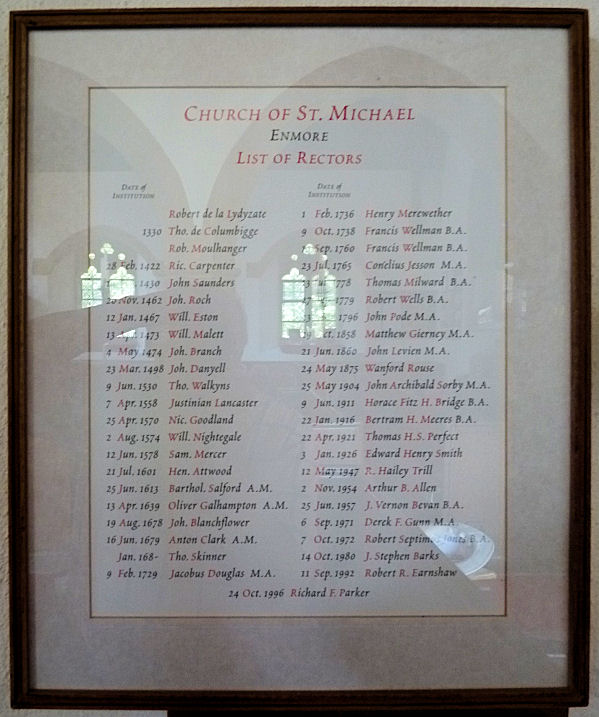 CHURCH OF ST. MICHAEL
ENMORE
LIST OF RECTORS
DATE of
INSTITUTION
Robert de la Lydyzate
1330 Tho. de Columbigge
Rob. Moulhanger
28 Feb. 1422 Ric. Carpenter
1430 John Saunders
20 Nov. 1462 Joh. Roch
12 Jan. 1467 Will. Eston
13 1473 Will. Malett
4 May 1474 Joh. Branch
23 Mar. 1498 Joh. Danyell
9 Jun. 1530 Tho. Walkyns
7 Apr. 1558 Justinian Lancaster
25 Apr. 1570 Nic. Goodland
2 Aug. 1574 Will. Nightegale
12 Jun. 1578 Sam. Mercer
21 Jul. 1601 Hen. Attwood
25 Jun. 1613 Barthol. Salford A.M.
13 Apr. 1639 Oliver Galhampton A.M.
19 Aug. 1678 Joh. Blanchflower
16 Jun. 1679 Anton Clark A.M.
Jan. 168- Tho. Skinner
9 Feb. 1729 Jacobus Douglas M.A.
DATE of
INSTITUTION
1 Feb. 1736 Henry Merewether
9 Oct. 1738 Francis Wellman B.A.
Sep. 1760 Francis Wellman B.A.
23 Jul. 1765 Cornelius Jesson M.A.
1778 Thomas Milward B.A.
1779 Robert Wells B.A.
1796 John Pode M.A.
Oct. 1858 Matthew Gierney M.A.
21 Jun. 1860 John Levien M.A.
24 May 1875 Wanford Rouse
25 May 1904 John Archibald Sorby M.A.
9 Jun. 1911 Horace Fitz H. Bridge B.A.
22 Jan. 1916 Bertram H. Meeres B.A.
22 Apr. 1921 Thomas H.S. Perfect
3 Jan. 1926 Edward Henry Smith
12 May 1947 R. Hailey Trill
2 Nov. 1954 Arthur B. Allen
25 Jun. 1957 J. Vernon Bevan B.A.
6 Sep. 1971 Derek F. Gunn M.A.
7 Oct. 1972 Robert Septimus Jones B.A.
14 Oct. 1980 J. Stephen Barks
11 Sep. 1992 Robert R. Earnshaw
24 Oct. 1996 Richard F. Parker